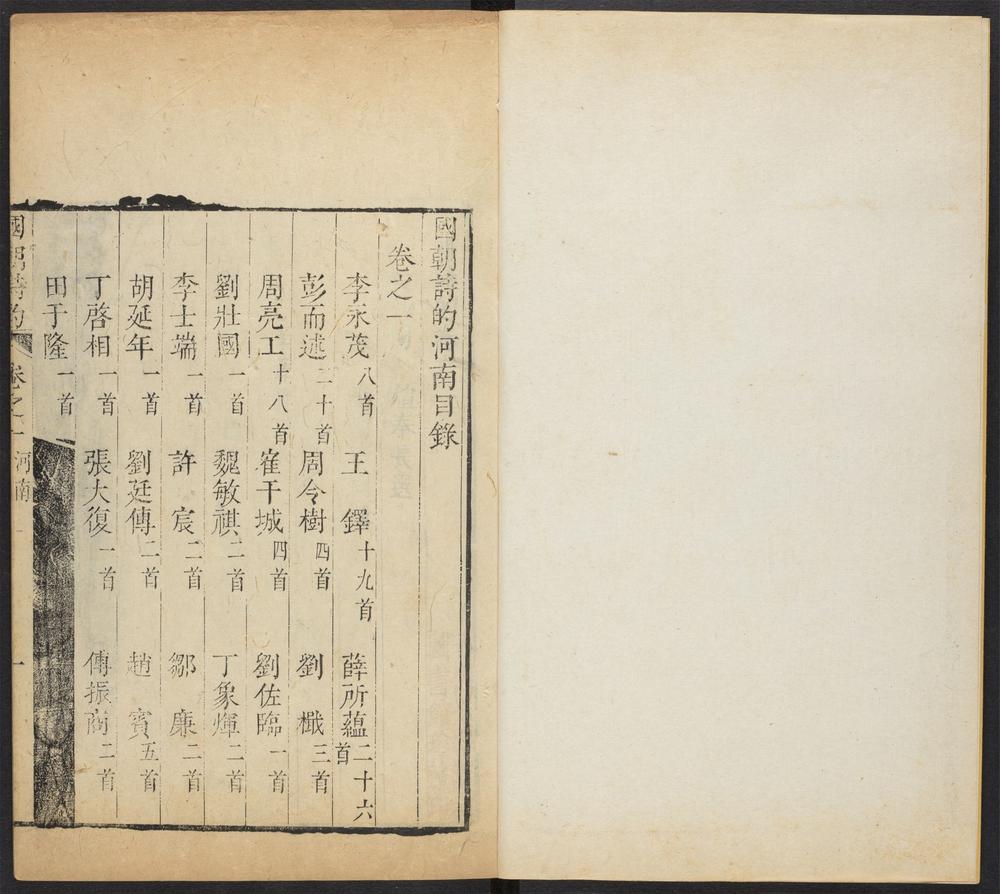 國朝詩的河南目錄
卷之一
李永茂八首 王鐸十九首 薛所蘊二十六首
彭而述二十首 周令樹四首 劉檝三首
周亮工十八首 崔干城四首 劉佐臨一首
劉壯國一首 魏敏祺二首 丁象煇二首
李士端一首 許宸二首 鄒廉二首
胡延年一首 劉廷傳二首 趙賓五首
丁啓相一首 張大復一首 傅振商二首
田于隆一首
國朝詩的 卷之一 河南 一